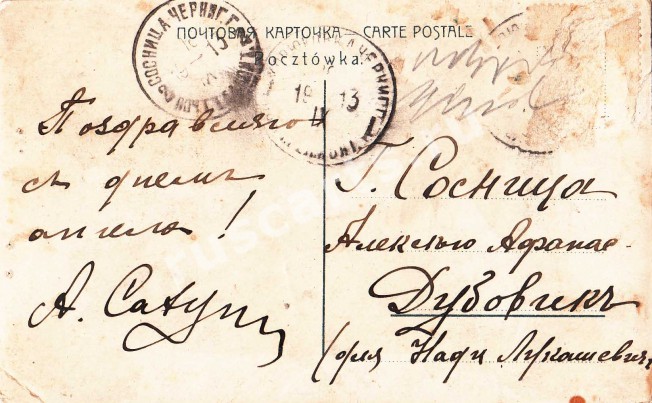 ПОЧТОВАЯ КАРТОЧКА - CARTE POSTALE
Pocztówka.
СОСНИЦА ЧЕРНИГ. Г.
19 13
IX
Поздравляю
съ днемъ
ангела!
А.
Г. Сосница
Алексѣю Афанас-
Дубовикъ
(для Нади Лукашевичъ